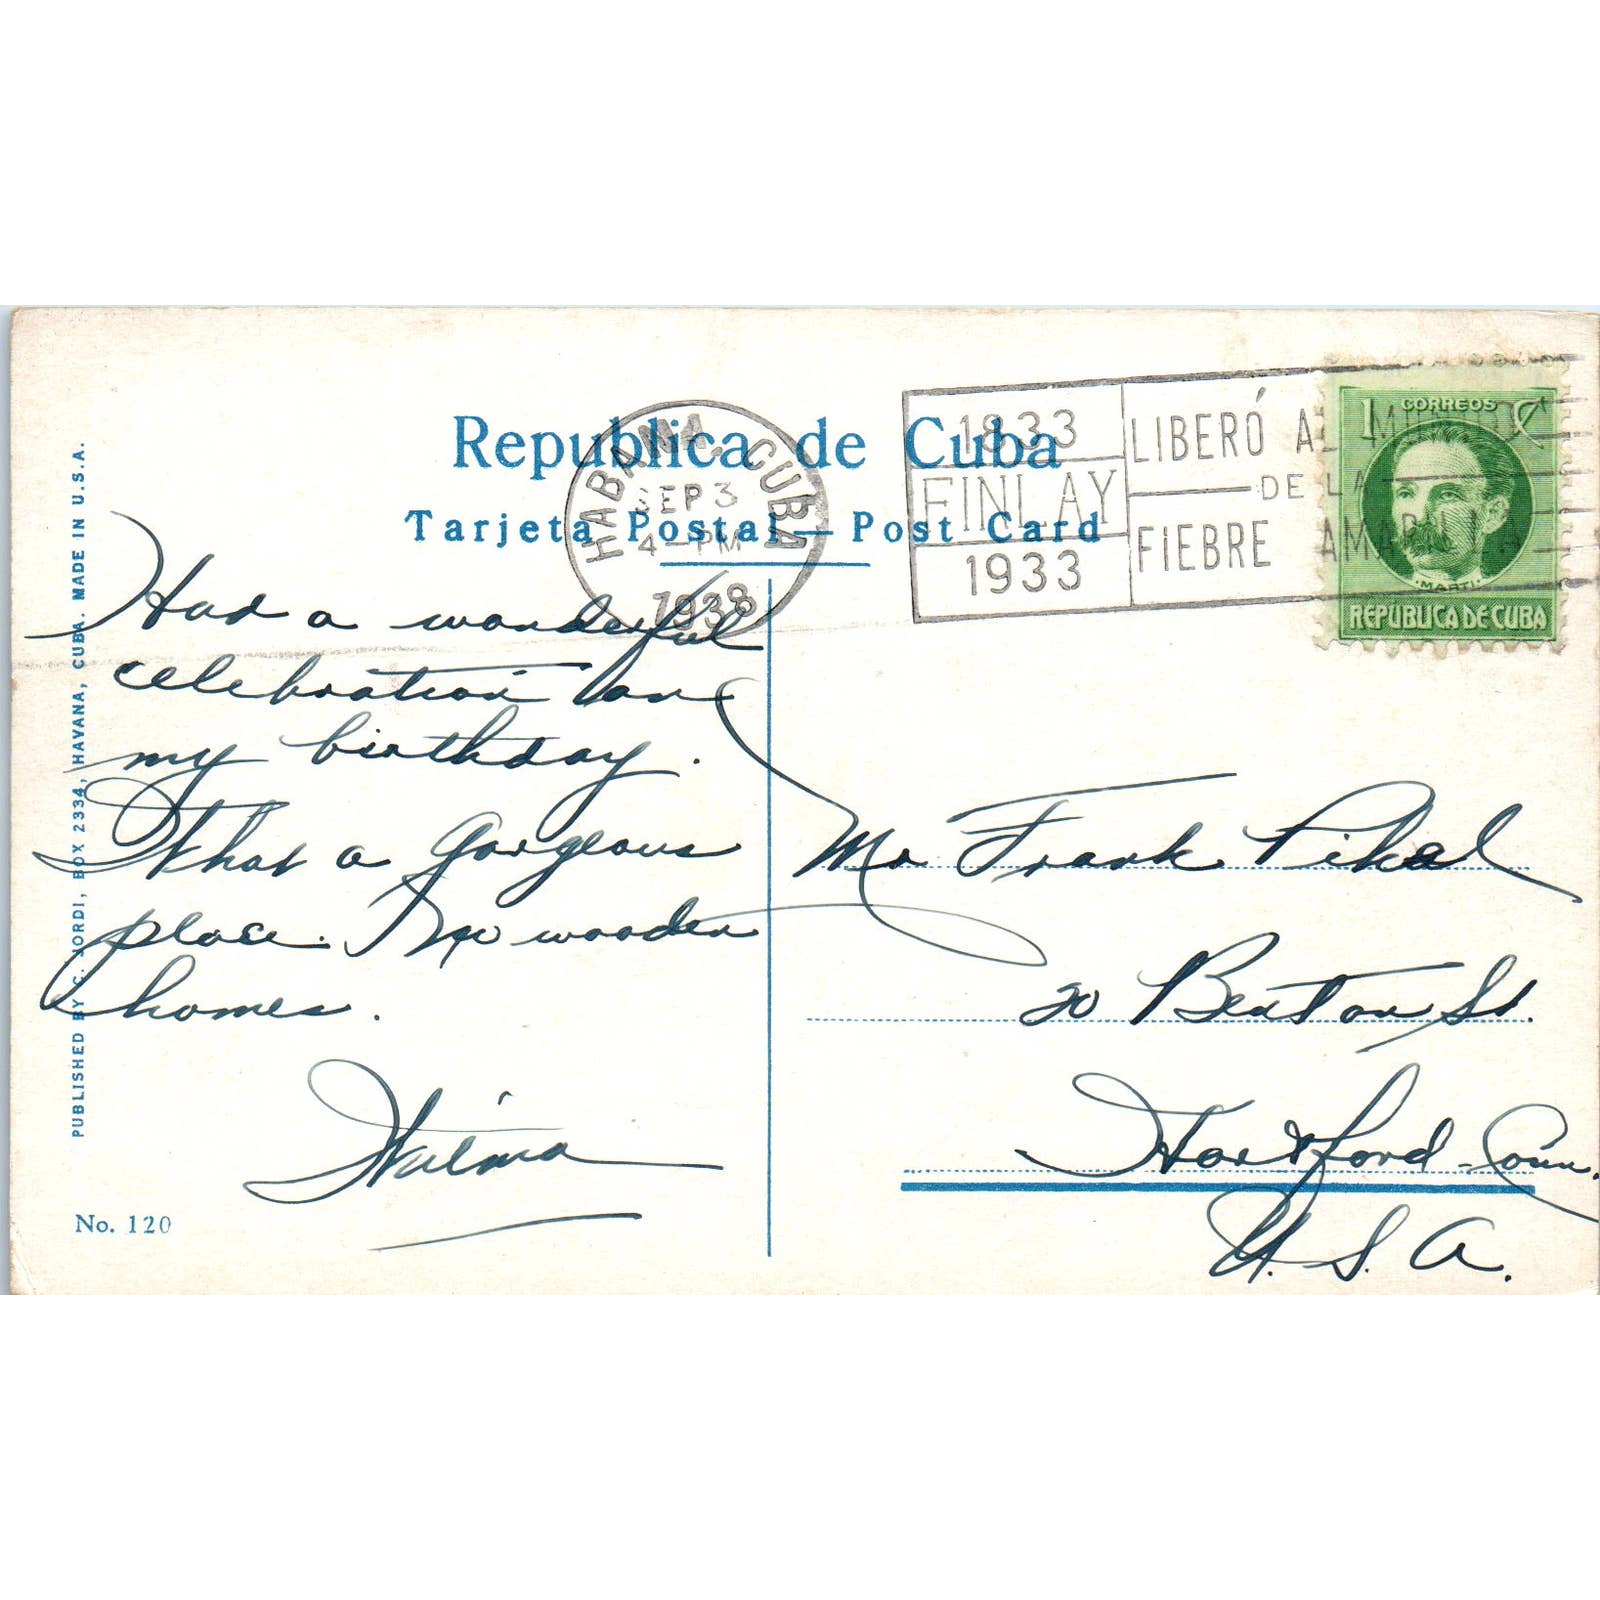 Republica de Cuba
Tarjeta Postal — Post Card
HABANA, CUBA
SEP 3
4 - PM
1938
1833
FINLAY
1933
LIBERÓ AL MUNDO
DE LA
FIEBRE AMARILLA
1 CORREOS ¢
MARTI
REPÚBLICA DE CUBA
PUBLISHED BY C. JORDI, BOX 2334, HAVANA, CUBA. MADE IN U.S.A.
Had a wonderful
celebration on
my birthday.
What a gorgeous
place. No wooden
homes.
Wilma
No. 120
Mr Frank Pikel
20 Benton St.
Hartford - Conn.
U. S. A.